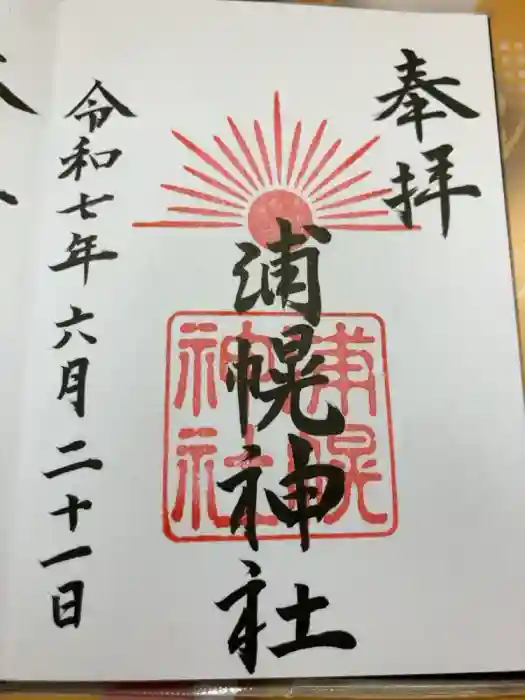 奉拝
浦幌神社
浦幌
神社
令和七年六月二十一日